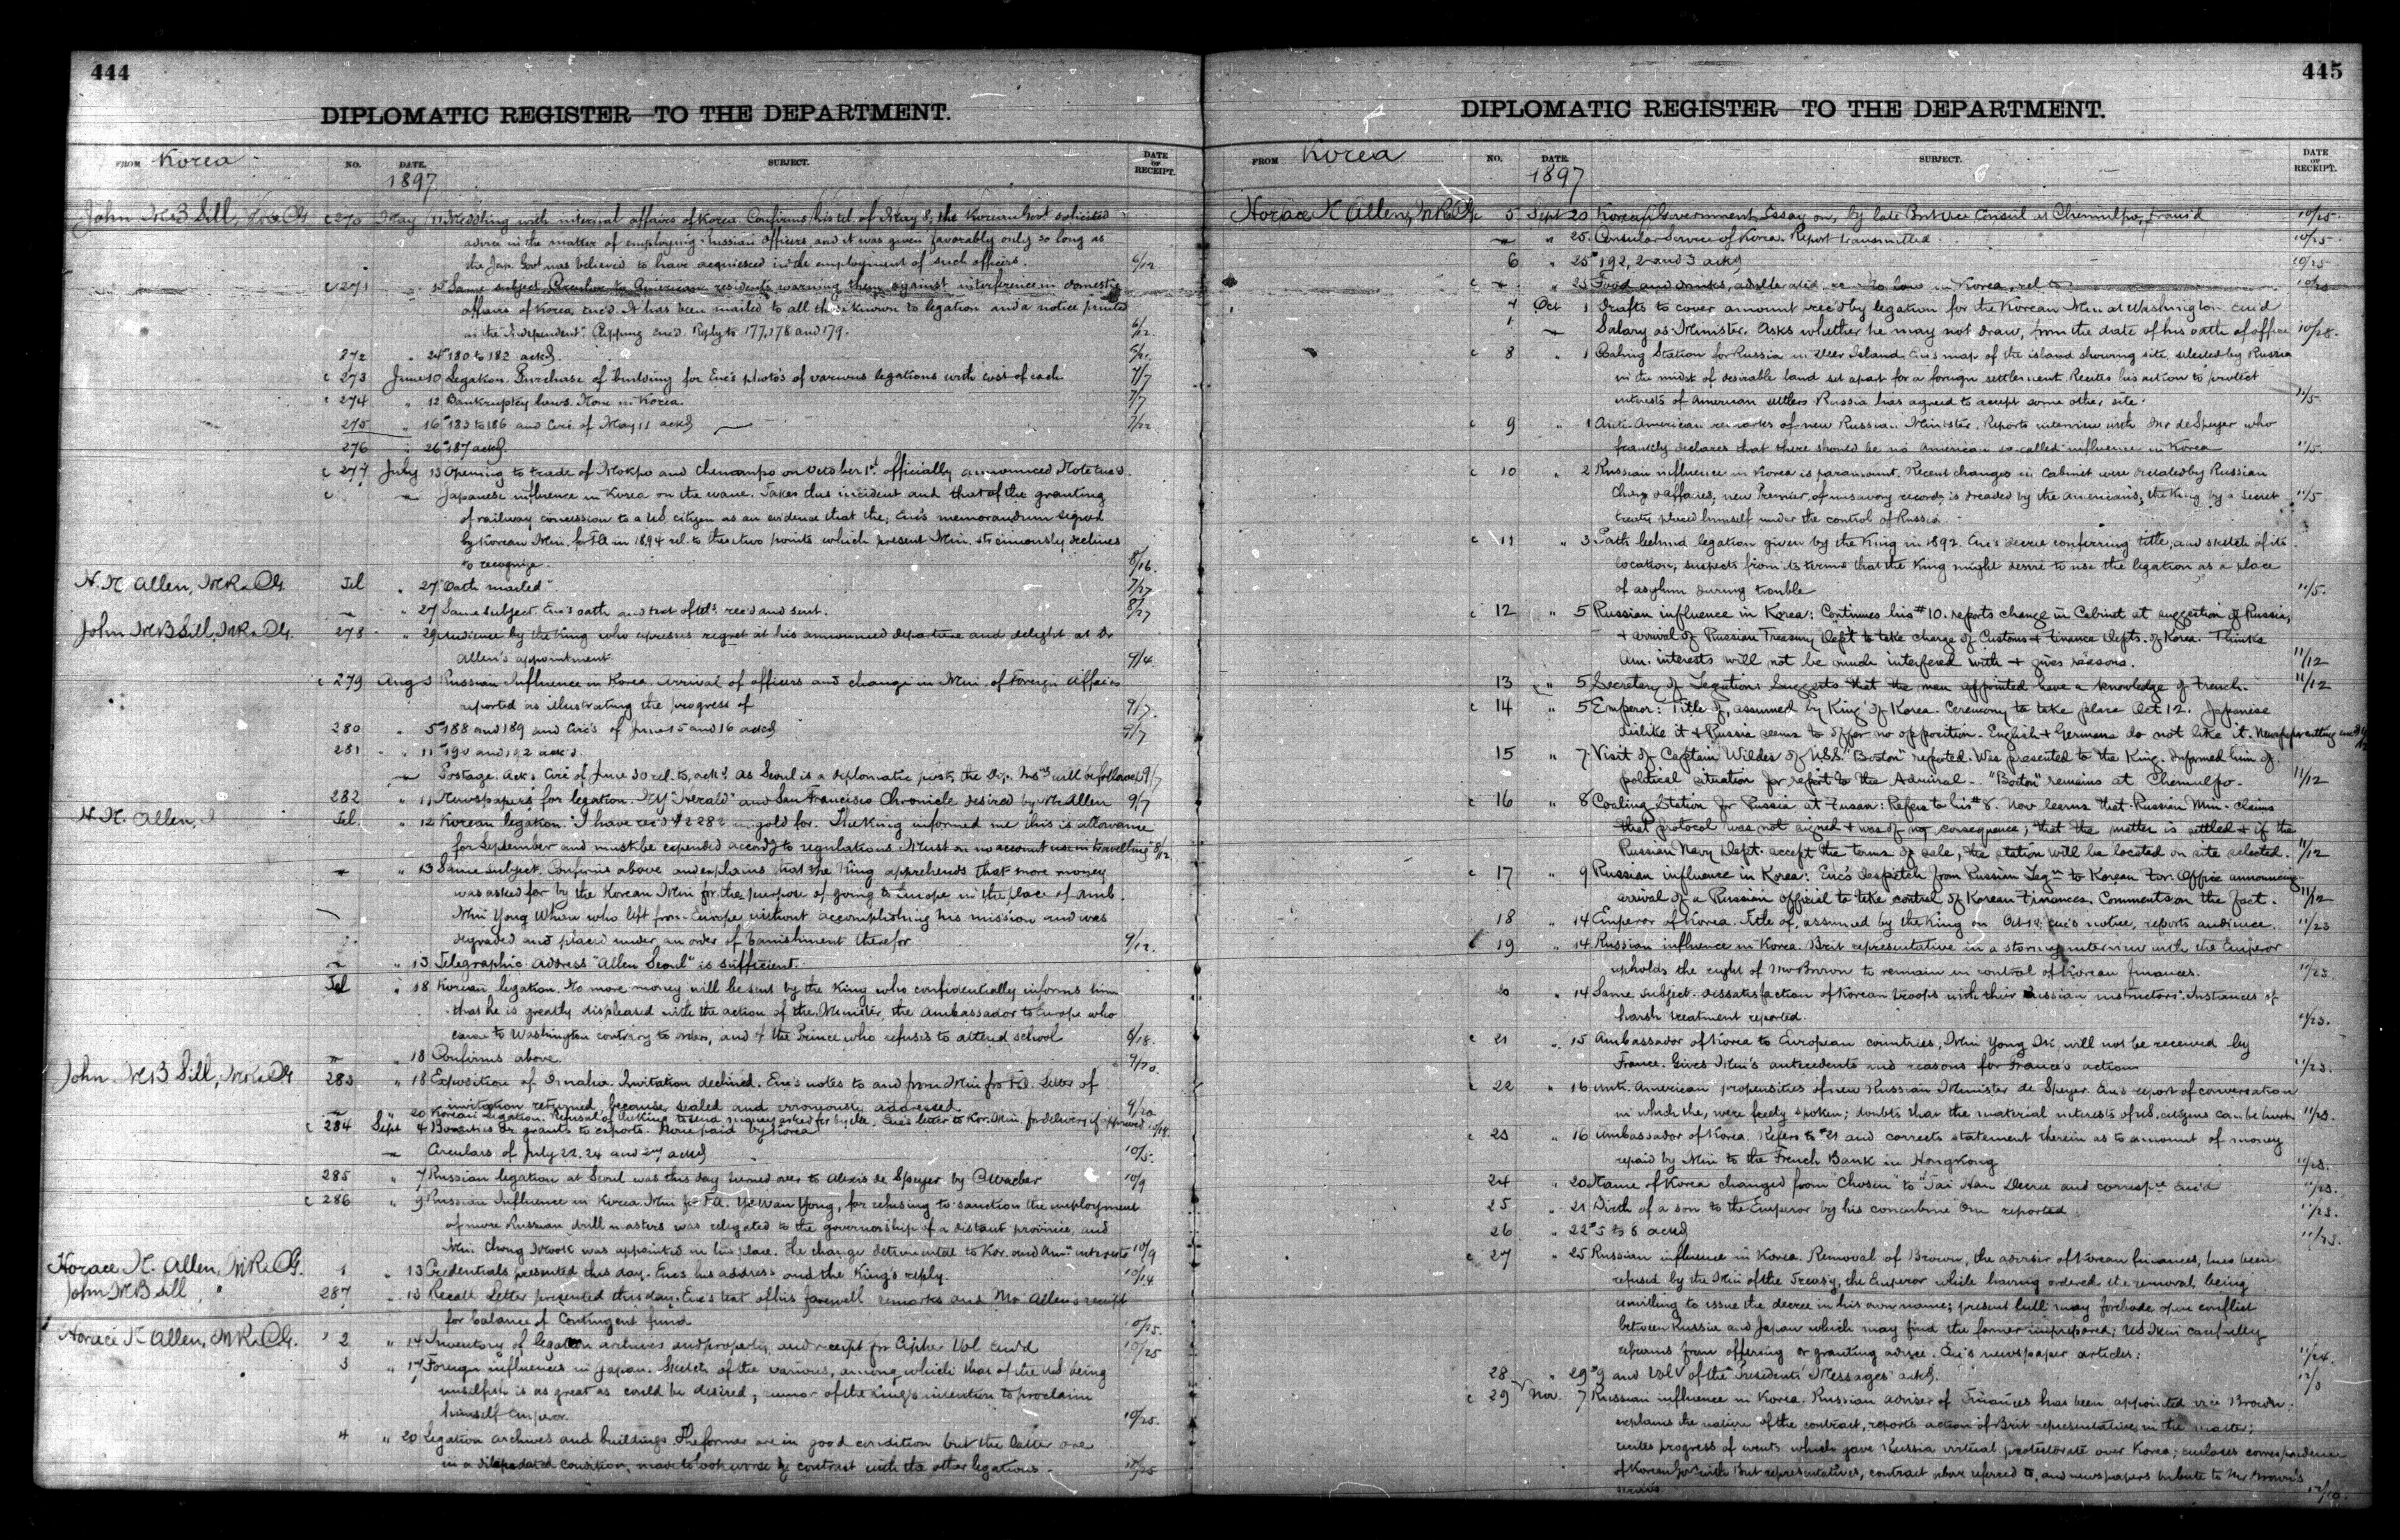 444
DIPLOMATIC REGISTER—TO THE DEPARTMENT.
FROM Korea NO. DATE. SUBJECT. DATE OF RECEIPT.
1897
John M B Sill, MR & CG c 270 May 11 Meddling with internal affairs of Korea. Confirms his tel. of May 8, the Korean Govt solicited
advice in the matter of employing Russian Officers, and it was given favorably only so long as
the Jap. Govt was believed to have acquiesced in the employment of such officers. 6/12
c 271 " 15 Same subject Circular to American residents warning them against interference in domestic
affairs of Korea enc'd. It has been mailed to all those known to legation and a notice printed
in the "Independent". Clipping enc'd. Reply to 177, 178 and 179. 6/12.
272 " 24 # 180 to 182 ackd.
c 273 June 10 Legation. Purchase of building for Enc's photo's of various legations with cost of each 7/7
c 274 " 12 Bankruptcy laws. None in Korea. 7/7
275 " 16 # 183 to 186 and Circ. of May 11 ackd
276 " 26 # 187 ackd.
c 277 July 13 Opening to trade of Mokpo and Chenampo on October 1st officially announced Note enc'd.
c " Japanese influence in Korea on the wane. Takes this incident and that of the granting
of railway concession to a US citizen as an evidence that the, Enc's memorandum signed
by Korean Min. for FA in 1894 rel. to these two points which present Min. strenuously declines
to recognize. 8/16.
H. N. Allen, MR & CG Tel " 27 "Oath mailed". 7/27
" 27 Same subject. Enc's oath and text of tels. rec'd and sent. 8/27
John M B Sill, MR & CG. 278 " 29 Audience by the King who expresses regret at his announced departure and delight at Dr
Allen's appointment 9/4.
c 279 Aug 3 Russian Influence in Korea. Arrival of officers and change in Min. of Foreign Affairs
reported as illustrating the progress of 9/7.
280 " 5 # 188 and 189 and Circ's of June 15 and 16 ackd 9/7
281 " 11 # 190 and 192 ack'd.
Postage. Ack's Circ of June 30 rel. to, ackd. As Seoul is a diplomatic post, the Dip. Ins'ns will be followed 9/7
282 " 11 Newspapers for legation. N.Y. "Herald" and San Francisco Chronicle desired by Mr Allen 9/7
H. N. Allen, Tel. " 12 Korean legation. "I have rec'd $2282 in gold for. The King informed me this is allowance
for September and must be expended accordg to regulations. Must on no account use in travelling" 8/12
" 13 Same subject. Confirms above and explains that the King apprehends that more money
was asked for by the Korean Min for the purpose of going to Europe in the place of Amb.
Min Yong Whan who left from Europe without accomplishing his mission and was
degraded and placed under an order of banishment therefor 9/12.
" 13 Telegraphic Address "Allen Seoul" is sufficient.
Tel " 18 Korean legation. No more money will be sent by the King who confidentially informs him
that he is greatly displeased with the action of the Minister, the Ambassador to Europe who
came to Washington contrary to orders, and of the Prince who refuses to attend school 8/18.
" 18 Confirms above. 9/20.
John M B Sill, MR & CG 283 " 18 Exposition of Omaha. Invitation declined. Enc's notes to and from Min for FA. Letter of
invitation returned because sealed and erroneously addressed 9/20
" 20 Korean Legation. Refusal of the King to send money asked for by the. Enc's letter to Kor. Min. for delivery if approved
c 284 Sept 4 Bounties or grants to exports. None paid by Korea
Circulars of July 22, 24 and ackd 10/5.
285 " 7 Russian legation at Seoul was this day turned over to Alexis de Speyer by C Waeber 10/9
c 286 " 9 Russian Influence in Korea. Min for FA. Ye Wan Yong, for refusing to sanction the employment
of more Russian drill masters was relegated to the governorship of a distant province, and
Min Chong Mook was appointed in his place. The change detrimental to Kor. and Am'n interests 10/9
Horace N. Allen, MR & CG. 1 " 13 Credentials presented this day. Enc's his address and the King's reply. 10/14
John M B Sill " 287 " 13 Recall Letter presented this day. Enc's text of his farewell remarks and Mr Allen's receipt
for balance of Contingent fund 10/15.
Horace N Allen, MR & CG. 2 " 14 Inventory of legation archives and property, and receipt for Cipher Vol enc'd 10/25
3 " 17 Foreign influences in Japan. Sketch of the various, among which that of the US being
unselfish is as great as could be desired; rumor of the King's intention to proclaim
himself Emperor. 10/25.
4 " 20 Legation archives and buildings. The former are in good condition but the latter are
in a dilapidated condition, made to look worse by contrast with the other legations. 10/25
445
DIPLOMATIC REGISTER—TO THE DEPARTMENT.
FROM Korea NO. DATE. SUBJECT. DATE OF RECEIPT.
1897
Horace N Allen, MR & CG c 5 Sept 20 Korean Government, Essay on, by late Brit Vice Consul at Chemulpo, trans'd 10/25.
" 25. Consular Service of Korea. Report transmitted. 10/25.
6 " 25 # 192, 2 and 3 ackd 10/25
c " 25 Food and drinks, adulterated, No law in Korea, rel to 10/25
Oct 1 Drafts to cover amount rec'd by legation for the Korean Min at Washington. Enc'd
Salary as Minister. Asks whether he may not draw, from the date of his oath of office 10/28.
c 8 " 1 Coaling Station for Russia in Deer Island. Enc's map of the island showing site selected by Russia
in the midst of desirable land set apart for a foreign settlement. Recites his action to protect
interests of American settlers. Russia has agreed to accept some other site. 11/5.
c 9 " 1 Anti-American remarks of new Russian Minister. Reports interview with Mr de Speyer who
frankly declares that there should be no American so-called influence in Korea 11/5.
c 10 " 2 Russian influence in Korea is paramount. Recent changes in Cabinet were dictated by Russian
Charge d'affaires, new Premier, of unsavory record, is dreaded by the Americans, the King by a secret 11/5
treaty placed himself under the control of Russia.
c 11 " 3 Path behind legation given by the King in 1892. Enc's decree conferring title, and sketch of its
location, suspects from its terms that the King might desire to use the legation as a place
of asylum during trouble 11/5.
c 12 " 5 Russian influence in Korea: Continues his #10. reports change in Cabinet at suggestion of Russia,
+ arrival of Russian Treasury Dep't to take charge of Customs + Finance Depts. of Korea. Thinks
Am. interests will not be much interfered with + gives reasons. 11/12
13 " 5 Secretary of Legation: Suggests that the man appointed have a knowledge of French. 11/12
c 14 " 5 Emperor: Title of, assumed by King of Korea. Ceremony to take place Oct 12. Japanese
dislike it + Russia seems to offer no opposition. English + Germans do not like it. Newspaper cutting enc'd
15 " 7 Visit of Captain Wildes of U.S.S. "Boston" reported. Was presented to the King. Informed him of
political situation for report to the Admiral. "Boston" remains at Chemulpo. 11/12
c 16 " 8 Coaling Station for Russia at Fusan: Refers to his #8. Now learns that Russian Min. claims
that protocol was not signed + was of no consequence; that the matter is settled + if the
Russian Navy Dept. accept the terms of sale, the station will be located on site selected. 11/12
c 17 " 9 Russian influence in Korea: Enc's despatch from Russian Leg'n to Korean For. Office announcing
arrival of a Russian official to take control of Korean Finances. Comments on the fact. 11/12
18 " 14 Emperor of Korea. Title of, assumed by the King on Oct 12; enc's notice, reports audience. 11/23
c 19 " 14 Russian influence in Korea. Brit representative in a stormy interview with the Emperor
upholds the right of Mr Brown to remain in control of Korean finances. 11/23.
20 " 14 Same subject. Dissatisfaction of Korean troops with their Russian instructors. Instances of
harsh treatment reported. 11/23.
c 21 " 15 Ambassador of Korea to European countries, Min Yong Ik, will not be received by
France. Gives Min's antecedents and reasons for France's action 11/23.
c 22 " 16 Anti-American propensities of new Russian Minister de Speyer. Enc's report of conversation
in which the, were freely spoken; doubts that the material interests of US. citizens can be hurt 11/23.
c 23 " 16 Ambassador of Korea. Refers to #21 and corrects statement therein as to amount of money
repaid by Min to the French Bank in Hongkong 11/23.
24 " 20 Name of Korea changed from "Chosen" to "Tai Han Decree and corresp'ce enc'd 11/23.
25 " 21 Birth of a son to the Emperor by his concubine Om reported 11/23.
26 " 22 # 5 to 8 ackd 11/23.
c 27 " 25 Russian influence in Korea. Removal of Brown, the adviser of Korean finances, has been
refused by the Min of the Treas'y, the Emperor while having ordered the removal, being
unwilling to issue the decree in his own name; present lull may forebode open conflict
between Russia and Japan which may find the former unprepared; US Min carefully
refrains from offering or granting advice. Enc's newspaper articles. 11/24.
28 " 29 # 9 and Vol V of the "Presidents' Messages" ackd.
c 29 Nov. 7 Russian influence in Korea. Russian adviser of Finances has been appointed vice Brown;
explains the nature of the contract, reports action of Brit representative in the matter;
recites progress of events which gave Russia virtual protectorate over Korea; encloses correspondence
of Korean Gov't with Brit representatives, contract above referred to, and newspapers tribute to Mr Brown's
12/10.